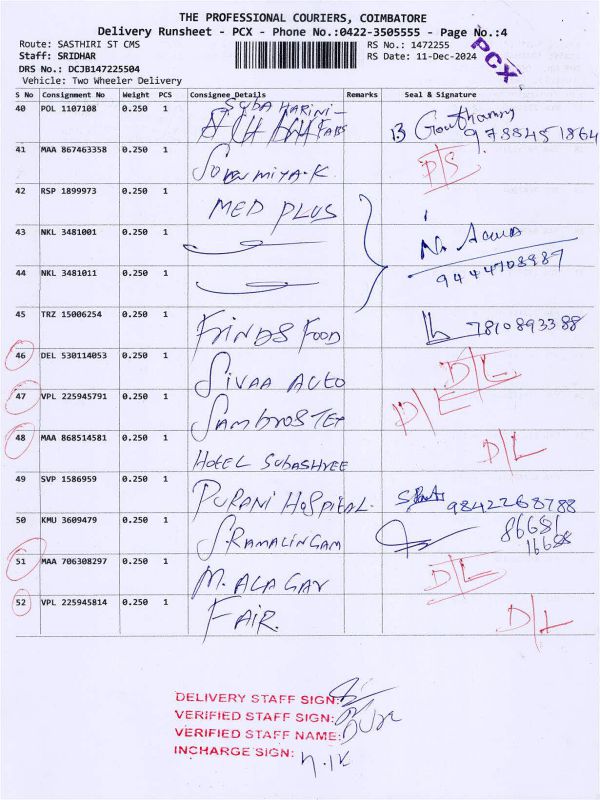 THE PROFESSIONAL COURIERS, COIMBATORE
Delivery Runsheet - PCX - Phone No.:0422-3505555 - Page No.:4
Route: SASTHIRI ST CMS
Staff: SRIDHAR
DRS No.: DCJB147225504
Vehicle: Two Wheeler Delivery
RS No.: 1472255
RS Date: 11-Dec-2024
PCX
S No Consignment No Weight PCS Consignee Details Remarks Seal & Signature
40 POL 1107108 0.250 1 SUBA HARINI FABS Gowthamy 9788451864
41 MAA 867463358 0.250 1 D/S
42 RSP 1899973 0.250 1 MED PLUS
43 NKL 3481001 0.250 1
44 NKL 3481011 0.250 1 9444708987
45 TRZ 15006254 0.250 1 FOOD 7810893388
46 DEL 530114053 0.250 1 SIVAA AUTO D/L
47 VPL 225945791 0.250 1 SAMBROS TEX D/L
48 MAA 868514581 0.250 1 HOTEL SUBASHREE D/L
49 SVP 1586959 0.250 1 PURANI HOSPITAL. 9842268788
50 KMU 3609479 0.250 1 S. RAMALINGAM 86681 16688
51 MAA 706308297 0.250 1 M. ALAGAR D/L
52 VPL 225945814 0.250 1 FAIR. D/L
DELIVERY STAFF SIGN:
VERIFIED STAFF SIGN:
VERIFIED STAFF NAME:
INCHARGE SIGN: